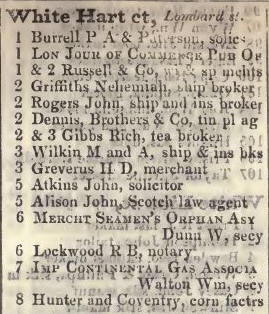 White Hart ct, Lombard st.
1 Burrell P A & Pattison, solics
1 Lon Jour of Commerce Pub Of
1 & 2 Russell & Co, w & sp mchts
2 Griffiths Nehemiah, ship broker
2 Rogers John, ship and ins broker
2 Dennis, Brothers & Co, tin pl ag
2 & 3 Gibbs Rich, tea broker
3 Wilkin M and A, ship & ins bks
3 Greverus H D, merchant
5 Atkins John, solicitor
5 Alison John, Scotch law agent
6 Mercht Seamen's Orphan Asy
Dunn W, secy
6 Lockwood R B, notary
7 Imp Continental Gas Associa
Walton Wm, secy
8 Hunter and Coventry, corn factrs